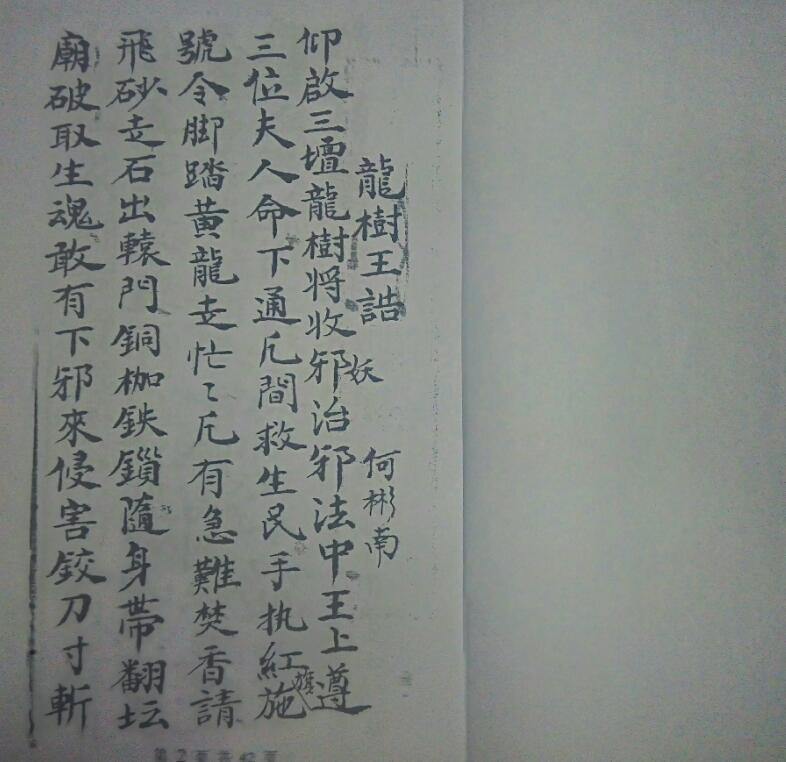 龍樹王誥 何彬南
仰啟三壇龍樹將收邪妖治邪法中王上遵
三位夫人命下通凡間救生民手执紅施旗
號令脚踏黄龍走忙〻凡有急難焚香請
飛砂走石出轅門銅枷鉄鎖隨身帶翻坛
廟破取生魂敢有下邪來侵害鉸刀寸斬
第2頁共42頁